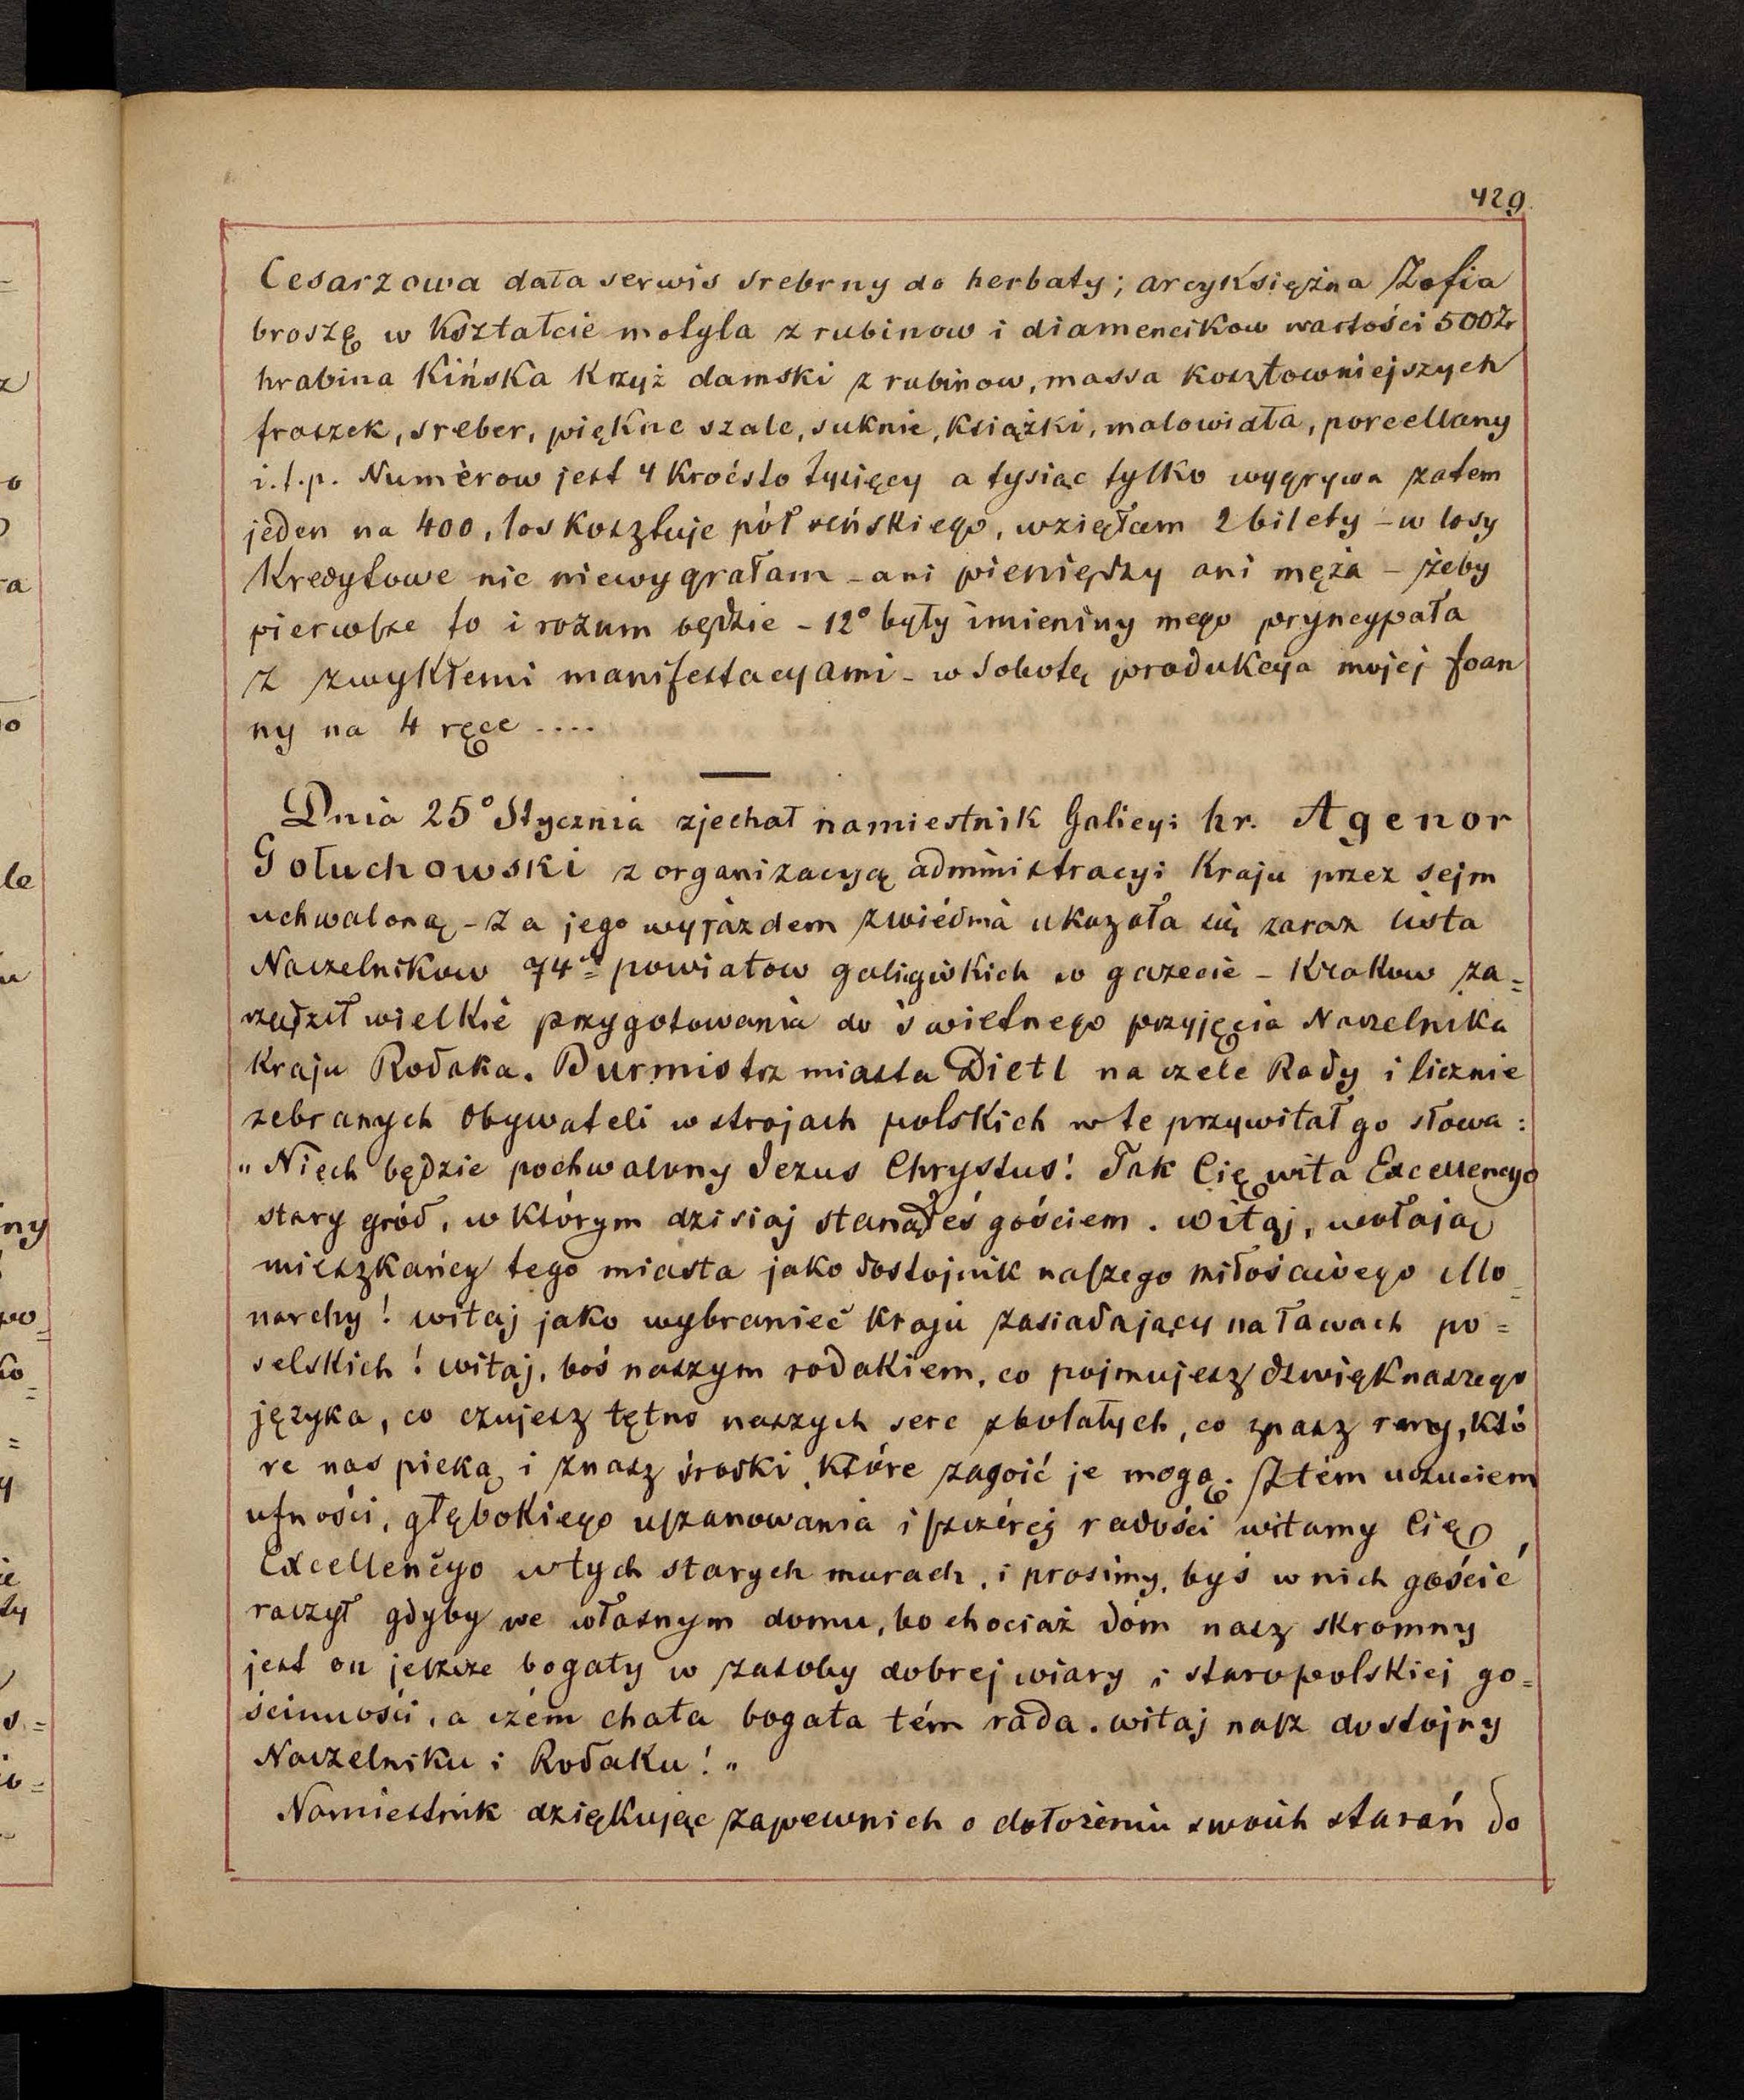 429.
Cesarzowa dała serwis srebrny do herbaty; arcyksiężna Zofia
broszę w kształcie motyla z rubinow i diamencikow wartości 500 Zr
hrabina Kińska krzyż damski z rubinow, massa kosztowniejszych
fraszek, sreber, piękne szale, suknie, książki, malowidła, porcellany
i.t.p. Numerow jest 4 kroćsto tysięcy a tysiąc tylko wygrywa zatem
jeden na 400, los kosztuje pół reńskiego, wzięłam 2 bilety - w losy
Kredytowe nic niewygrałam - ani pieniędzy ani męża - żeby
pierwsze to i rozum będzie - 12° były imieniny mego pryncypała
z zwykłemi manifestacyami - w Sobotę produkcya mojej Joan
ny na 4 ręce ....
Dnia 25° Stycznia zjechał namiestnik Galicyi hr. Agenor
Gołuchowski z organizacyą administracyi Kraju przez sejm
uchwaloną - Za jego wyjazdem z wiédnia ukazała się zaraz lista
Naczelnikow 74 powiatow galicyiskich w gazecie - Krakow za=
rządził wielkie przygotowania do świetnego przyjęcia Naczelnika
Kraju Rodaka. Burmistrz miasta Dietl na czele Rady i licznie
zebranych Obywateli w strojach polskich w te przywitał go słowa:
„Niech będzie pochwalony Jezus Chrystus! Tak Cię wita Excellencyo
stary gród, w którym dzisiaj stanąłeś gościem. witaj, wołają
mieszkańcy tego miasta jako dostojnik naszego miłościwego Mo=
narchy! witaj jako wybraniec kraju zasiadający na ławach po=
selskich! witaj, boś naszym rodakiem, co pojmujesz dzwięk naszego
języka, co czujesz tętno naszych serc zbolałych, co znasz rany, któ
re nas pieką i znasz środki, które zagoić je mogą. Z tém uczuciem
ufności, głębokiego uszanowania i szczérej radości witamy Cię
Excellencyo w tych starych murach, i prosimy, byś w nich gościć
raczył gdyby we własnym domu, bo chociaż dóm nasz skromny
jest on jeszcze bogaty w zasoby dobrej wiary i staropolskiej go=
ścinności, a czém chata bogata tém rada. witaj nasz dostojny
Naczelniku i Rodaku!"
Namiestnik dziękując zapewnich o dołożeniu swoich starań do